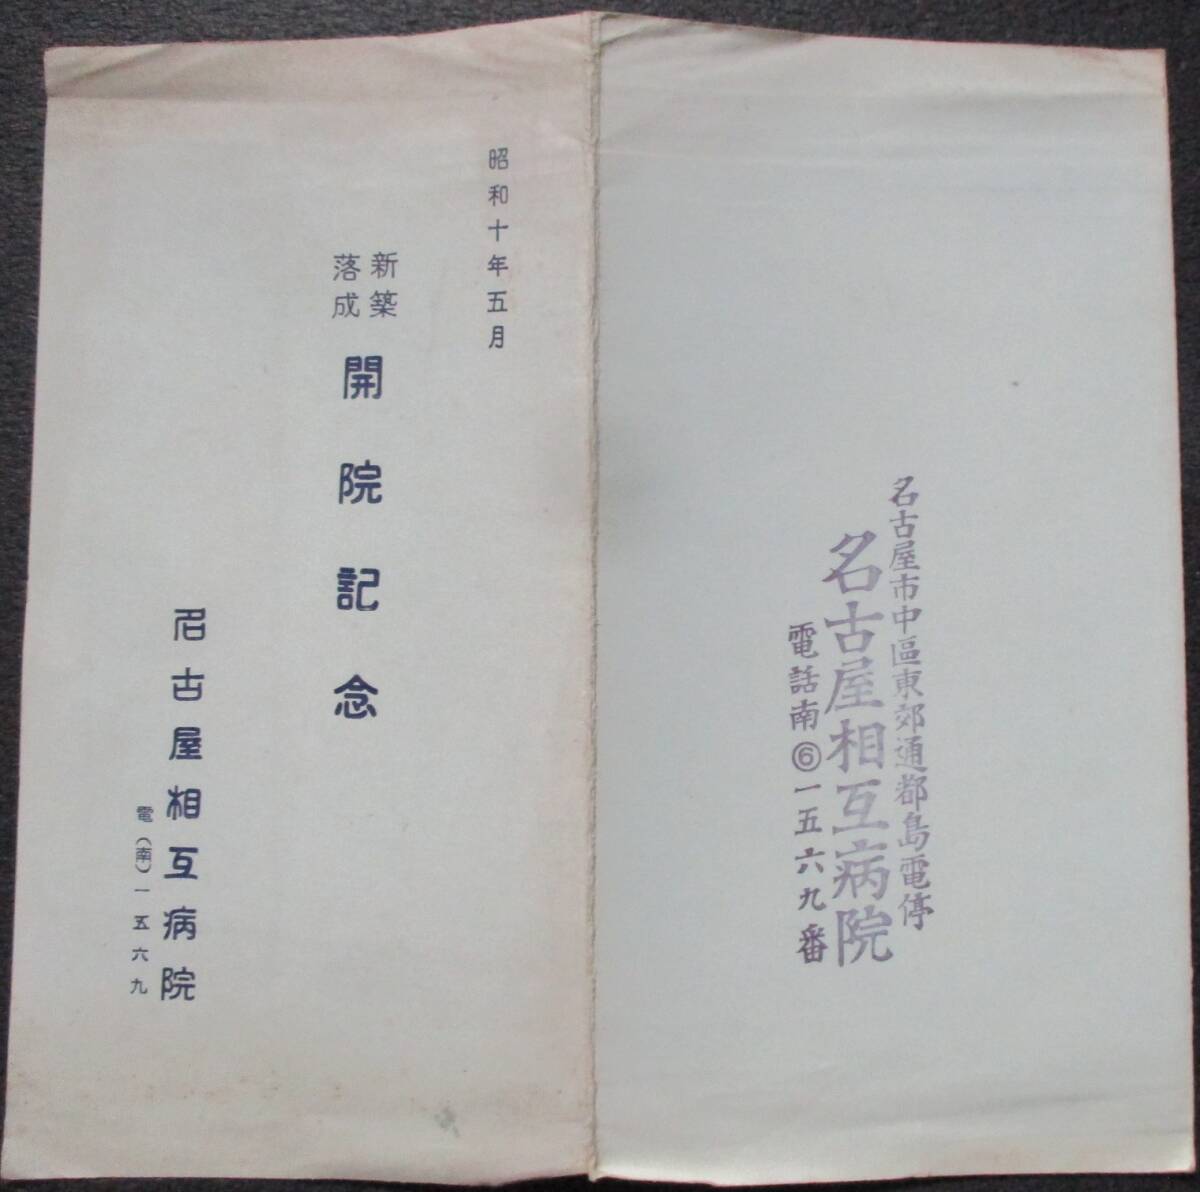 昭和十年五月
新築
落成
開院記念
名古屋相互病院
電(南)一五六九
名古屋市中區東郊通都島電停
名古屋相互病院
電話南⑥一五六九番